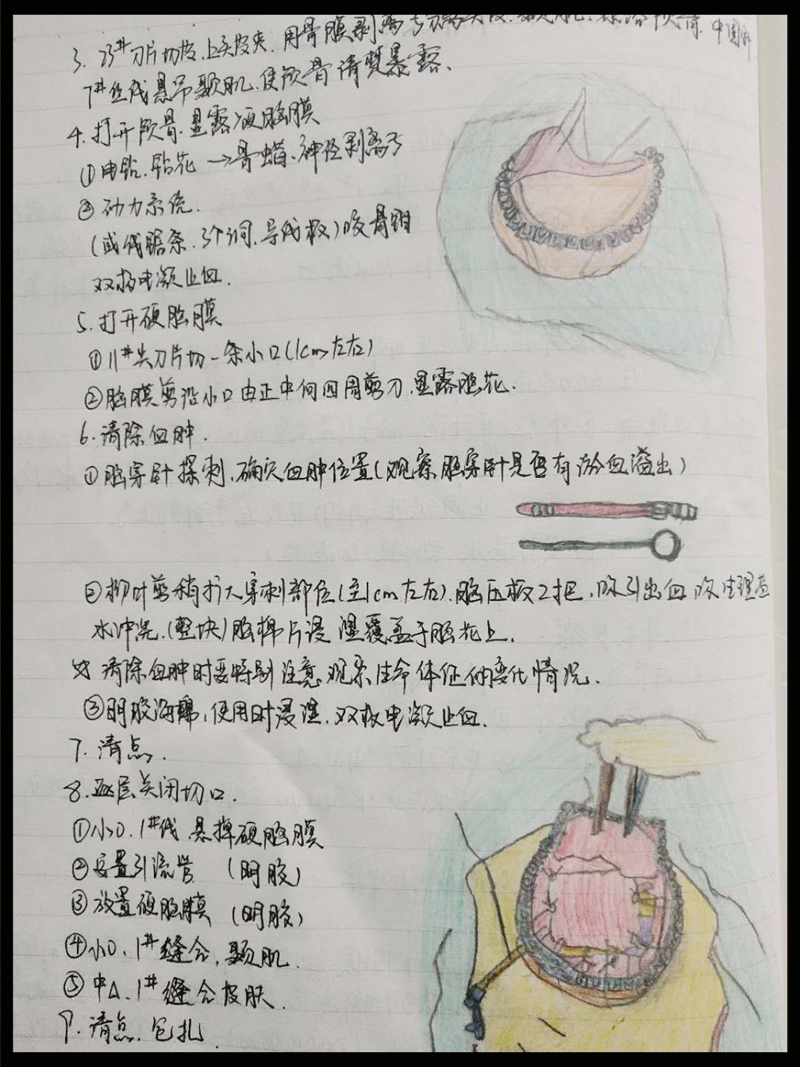 3. 23#刀片切皮,上头皮夹,用骨膜剥离
7#丝线悬吊颞肌,使颅骨清楚暴露、
4.打开颅骨.显露硬脑膜
①电钻.钻花→骨蜡.神经剥离子
②动力系统.
(或线锯条.3个洞.导线板)咬骨钳
双极电凝止血.
5.打开硬脑膜
①11#尖刀片切一条小口(1cm左右)
②脑膜剪沿小口由正中向四周剪刀.显露脑花.
6.清除血肿.
①脑穿针探刺.确定血肿位置(观察脑穿针是否有淤血溢出)
②柳叶剪稍扩大穿刺部位(至1cm左右).脑压板2把,吸引出血 吸生理盐
水冲洗.(整块)脑棉片浸湿覆盖于脑花上.
清除血肿时要特别注意观察生命体征的变化情况.
③明胶海绵,使用时浸湿.双极电凝止血.
7.清点.
8.逐层关闭切口.
①小O.1#线 悬掉硬脑膜
②安置引流管 (明胶)
③放置硬脑膜 (明胶)
④小O.1#缝合,颞肌.
⑤中△.1#缝合皮肤.
9.清点.包扎